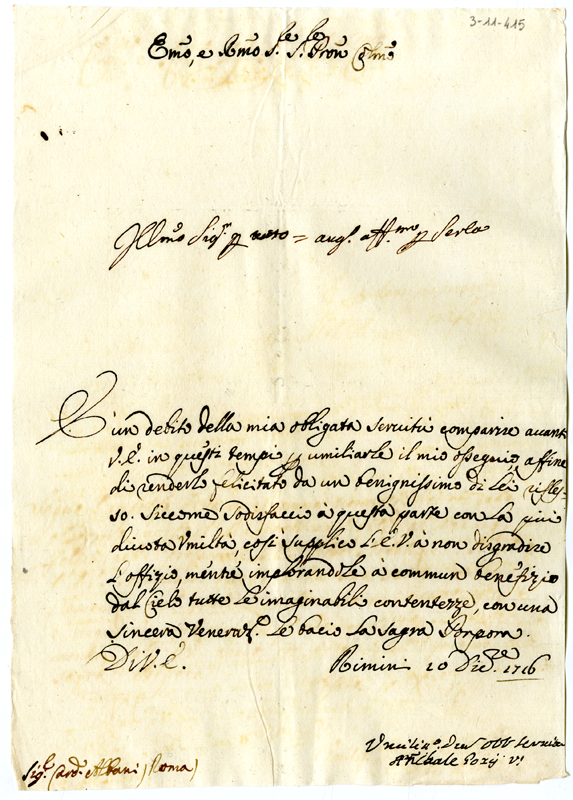 3-11-415
Emo, e Rmo Sre Sre Pron Clmo
Illmo Sigr p = aug. aff.mo p Serlo
È un debito della mia obligata seruitù comparire auanti
V.E. in questi tempi p umiliarle il mio ossequio, affine
di renderlo felicitato da un benignissimo di Lei rifles-
so. Siccome sodisfaccio à questa parte con la più
diuota Vmiltà, così supplico L'E.V. à non disgradire
L'offizio, mentre implorandole à commun benefizio
dal Cielo tutte le imaginabili contentezze, con una
sincera Veneraz.e le bacio la Sagra Porpora.
Di V.E.
Rimini 10 Dic.re 1716
Vmiliss.o Deu.o Obb Seruitor
Annibale
Sig.r Card. Albani, Roma)